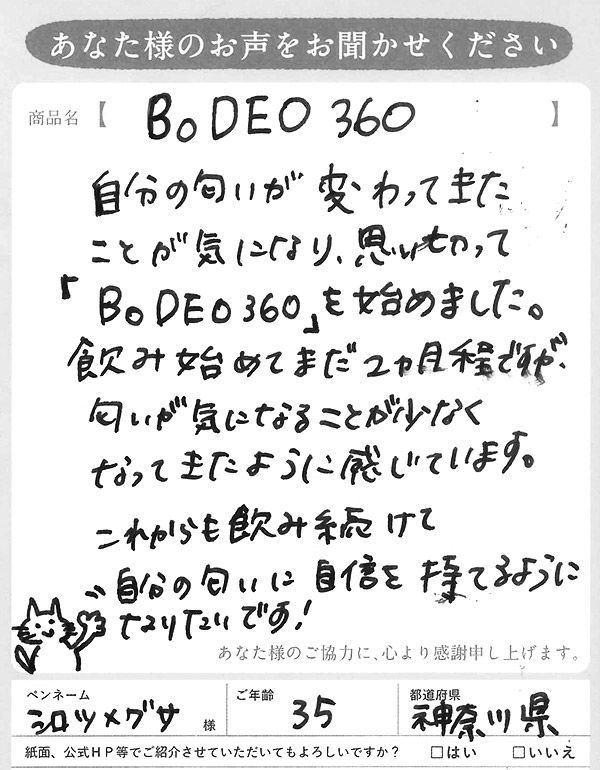 あなた様のお声をお聞かせください
商品名【 BoDEO 360 】
自分の匂いが変わってきた
ことが気になり、思い切って
「BoDEO360」を始めました。
飲み始めてまだ2ヵ月程ですが、
匂いが気になることが少なく
なってきたように感じています。
これからも飲み続けて
自分の匂いに自信を持てるように
なりたいです!
あなた様のご協力に、心より感謝申し上げます。
ペンネーム ご年齢 都道府県
シロツメグサ 様 35 神奈川県
紙面、公式HP等でご紹介させていただいてもよろしいですか? □はい □いいえ